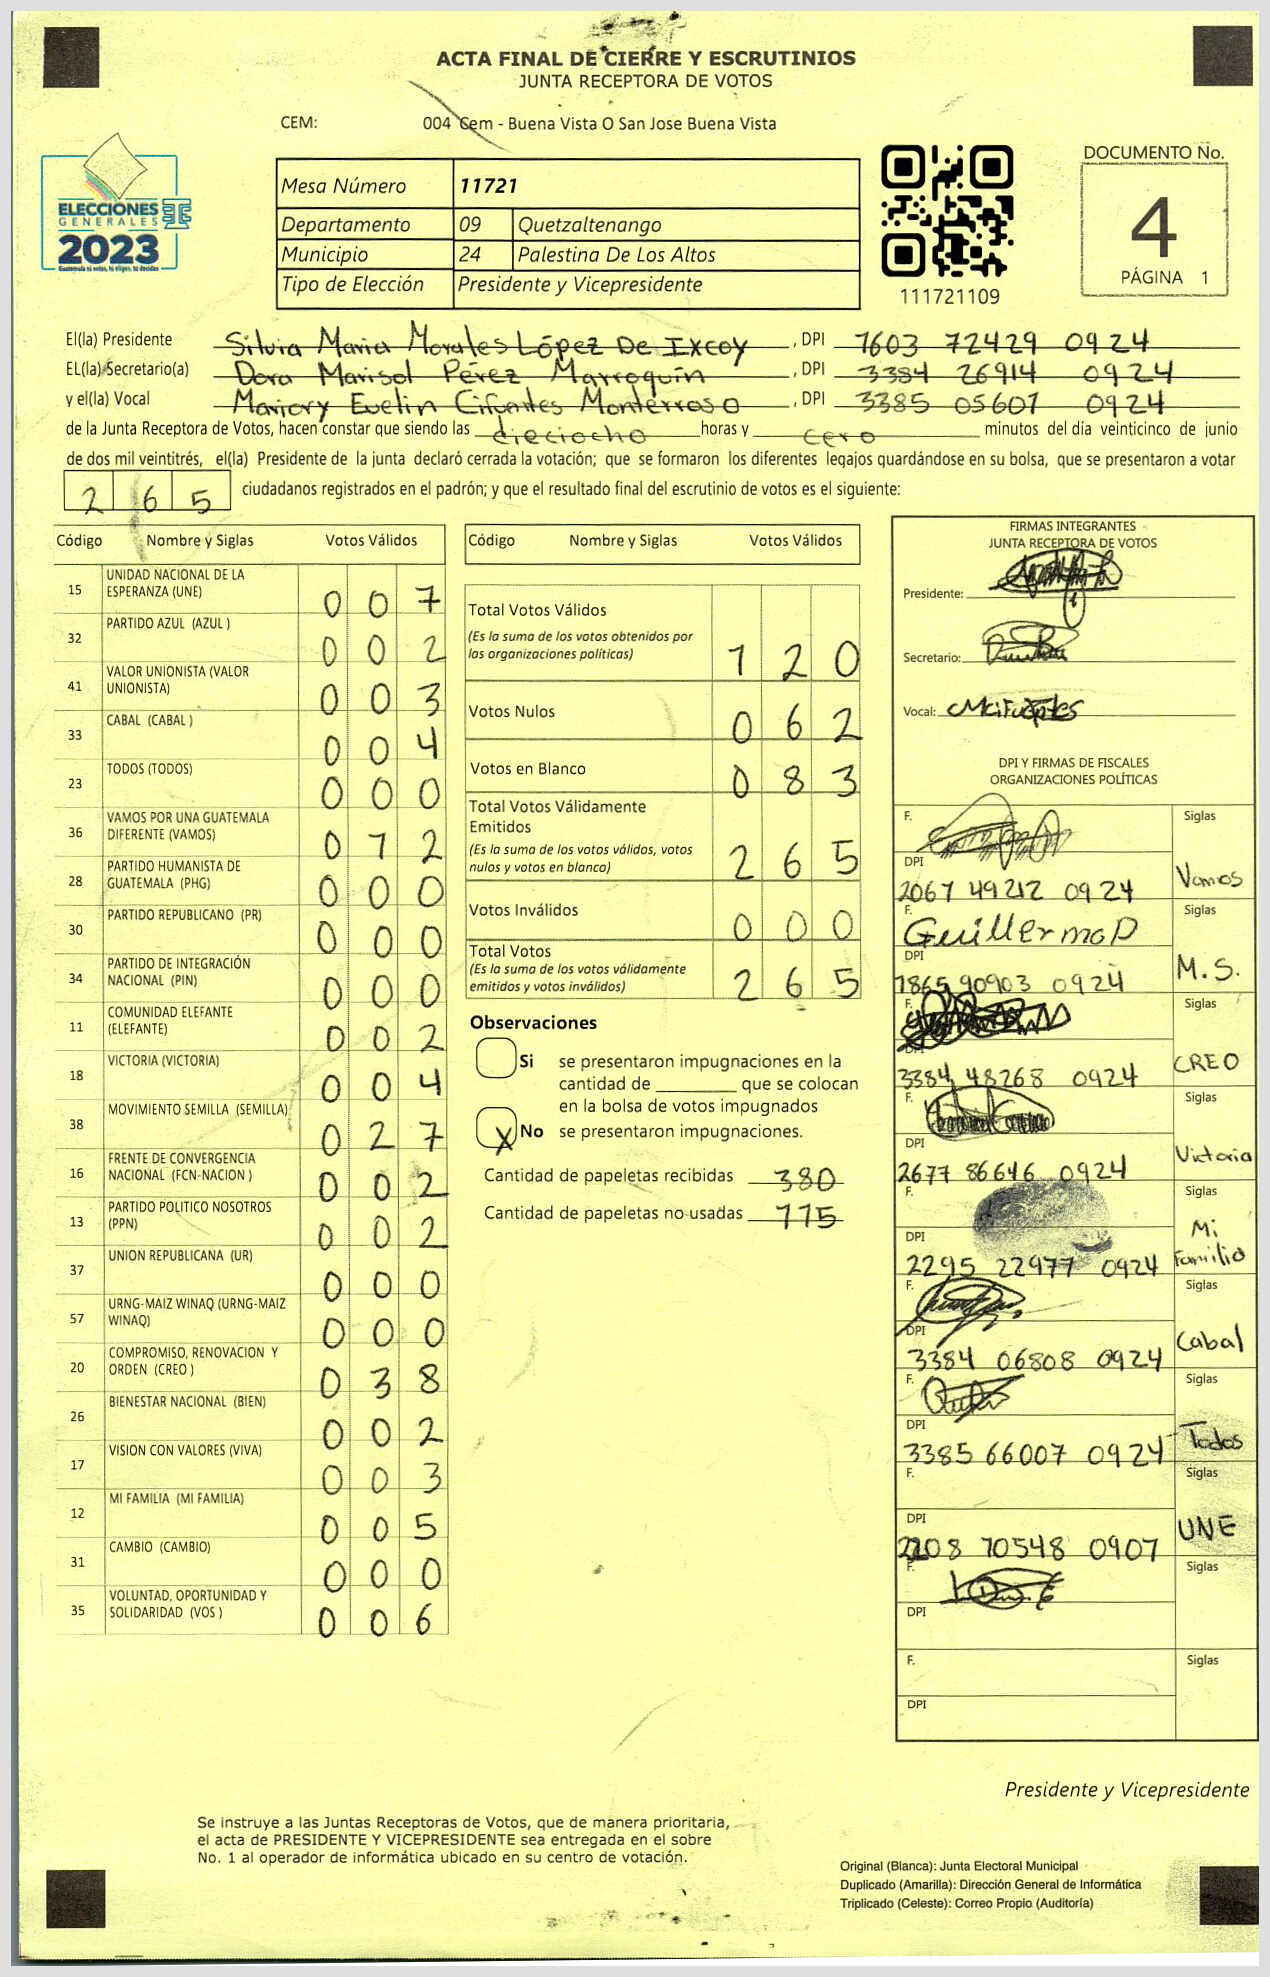 ACTA FINAL DE CIERRE Y ESCRUTINIOS
JUNTA RECEPTORA DE VOTOS
CEM: 004 Cem - Buena Vista O San Jose Buena Vista
ELECCIONES
GENERALES
2023
Guatemala tú votas, tú eliges, tú decides
Mesa Número 11721
Departamento 09 Quetzaltenango
Municipio 24 Palestina De Los Altos
Tipo de Elección Presidente y Vicepresidente
111721109
DOCUMENTO No.
4
PÁGINA 1
El(la) Presidente Silvia Maria Morales López De Ixcoy, DPI 1603 72429 0924
EL(la) Secretario(a) Dora Marisol Pérez Marroquín, DPI 3384 26914 0924
y el(la) Vocal Mariory Evelin Cifuentes Monterroso, DPI 3385 05607 0924
de la Junta Receptora de Votos, hacen constar que siendo las dieciocho horas y cero minutos del día veinticinco de junio
de dos mil veintitrés, el(la) Presidente de la junta declaró cerrada la votación; que se formaron los diferentes legajos guardándose en su bolsa, que se presentaron a votar
2 6 5 ciudadanos registrados en el padrón; y que el resultado final del escrutinio de votos es el siguiente:
Código Nombre y Siglas Votos Válidos
15 UNIDAD NACIONAL DE LA ESPERANZA (UNE) 0 0 7
32 PARTIDO AZUL (AZUL ) 0 0 2
41 VALOR UNIONISTA (VALOR UNIONISTA) 0 0 3
33 CABAL (CABAL ) 0 0 4
23 TODOS (TODOS) 0 0 0
36 VAMOS POR UNA GUATEMALA DIFERENTE (VAMOS) 0 1 2
28 PARTIDO HUMANISTA DE GUATEMALA (PHG) 0 0 0
30 PARTIDO REPUBLICANO (PR) 0 0 0
34 PARTIDO DE INTEGRACIÓN NACIONAL (PIN) 0 0 0
11 COMUNIDAD ELEFANTE (ELEFANTE) 0 0 2
18 VICTORIA (VICTORIA) 0 0 4
38 MOVIMIENTO SEMILLA (SEMILLA) 0 2 7
16 FRENTE DE CONVERGENCIA NACIONAL (FCN-NACION ) 0 0 2
13 PARTIDO POLITICO NOSOTROS (PPN) 0 0 2
37 UNION REPUBLICANA (UR) 0 0 0
57 URNG-MAIZ WINAQ (URNG-MAIZ WINAQ) 0 0 0
20 COMPROMISO, RENOVACION Y ORDEN (CREO ) 0 3 8
26 BIENESTAR NACIONAL (BIEN) 0 0 2
17 VISION CON VALORES (VIVA) 0 0 3
12 MI FAMILIA (MI FAMILIA) 0 0 5
31 CAMBIO (CAMBIO) 0 0 0
35 VOLUNTAD, OPORTUNIDAD Y SOLIDARIDAD (VOS ) 0 0 6
Código Nombre y Siglas Votos Válidos
Total Votos Válidos
(Es la suma de los votos obtenidos por
las organizaciones políticas) 1 2 0
Votos Nulos 0 6 2
Votos en Blanco 0 8 3
Total Votos Válidamente
Emitidos
(Es la suma de los votos válidos, votos
nulos y votos en blanco) 2 6 5
Votos Inválidos 0 0 0
Total Votos
(Es la suma de los votos válidamente
emitidos y votos inválidos) 2 6 5
Observaciones
Si se presentaron impugnaciones en la
cantidad de ________ que se colocan
en la bolsa de votos impugnados
X No se presentaron impugnaciones.
Cantidad de papeletas recibidas 380
Cantidad de papeletas no usadas 115
FIRMAS INTEGRANTES
JUNTA RECEPTORA DE VOTOS
Presidente:
Secretario:
Vocal: MCifuentes
DPI Y FIRMAS DE FISCALES
ORGANIZACIONES POLÍTICAS
F. Siglas
DPI 2067 49212 0924 Vamos
F. Guillermo P Siglas
DPI 1865 90903 0924 M.S.
F. Siglas
DPI 3384 48268 0924 CREO
F. Siglas
DPI 2677 86646 0924 Victoria
F. Siglas
DPI 2295 22977 0924 Mi Familia
F. Siglas
DPI 3384 06808 0924 Cabal
F. Siglas
DPI 3385 66007 0924 Todos
F. Siglas
DPI 2208 70548 0907 UNE
F. Siglas
DPI
F. Siglas
DPI
Presidente y Vicepresidente
Se instruye a las Juntas Receptoras de Votos, que de manera prioritaria,
el acta de PRESIDENTE Y VICEPRESIDENTE sea entregada en el sobre
No. 1 al operador de informática ubicado en su centro de votación.
Original (Blanca): Junta Electoral Municipal
Duplicado (Amarilla): Dirección General de Informática
Triplicado (Celeste): Correo Propio (Auditoría)